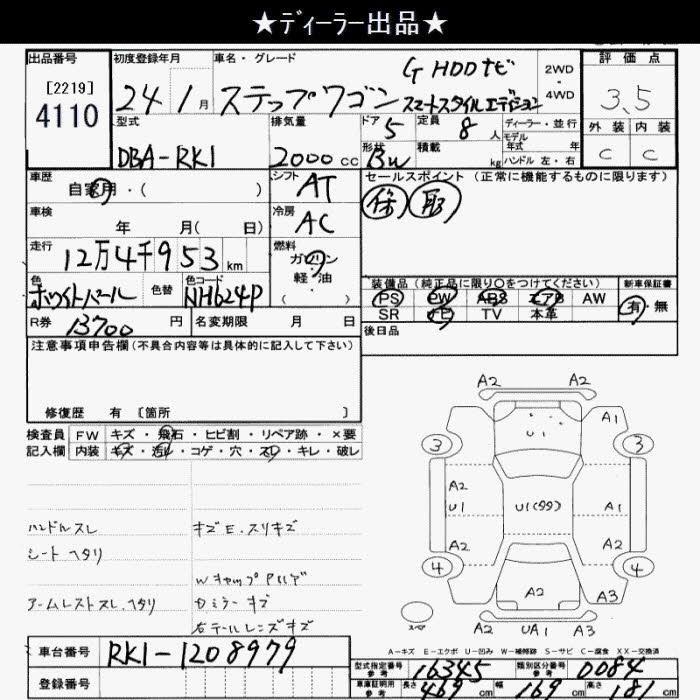 ★ディーラー出品★
出品番号
[2219]
4110
初度登録年月
24 1月
車名・グレード
G HDDナビ
ステップワゴン スマートスタイルエディション
2WD
・
4WD
評価点
3.5
外装 内装
C C
型式
DBA-RK1
排気量
2000 cc
ドア 5
形状 BW
定員 8 人
積載 kg
ディーラー・並行
モデル
年式 年
ハンドル 左・右
車歴
自家用・( )
シフト
AT
セールスポイント (正常に機能するものに限ります)
保 取
車検
年 月( 日)
冷房
AC
走行
12万4千953 km
燃料
ガソリン
軽・油
( )
色
ホワイトパール
色替
色コード
NH624P
装備品(純正品に限り○をつけてください)
PS PW ABS エアB AW
SR ナビ TV 本革
新車保証書
有・無
R券 13700 円
名変期限 月 日
後日品
注意事項申告欄(不具合内容等は具体的に記入して下さい)
修復歴 有 [箇所 ]
検査員 FW キズ・飛石・ヒビ割・リペア跡・×要
記入欄 内装 キズ・汚れ・コゲ・穴・スレ・キレ・破レ
ハンドルスレ
キズE.スリキズ
シートヘタリ
WキャップPハゲ
アームレストスレ.ヘタリ
Dミラーキズ
右テールレンズキズ
A2 A2
U1
A1
3 3
A2
U1
U1(99)
A1
A2 A2
4 4
A2
A3
スペア
A2 UA1 A3
A-キズ E-エクボ U-凹み W-補修跡 S-サビ C-腐食 XX-交換済
車台番号
RK1-1208979
登録番号
型式指定番号
参考
16345
類別区分番号
参考
0084
車庫証明用
参考
長さ 469 cm 幅 169 cm 高さ 181 cm